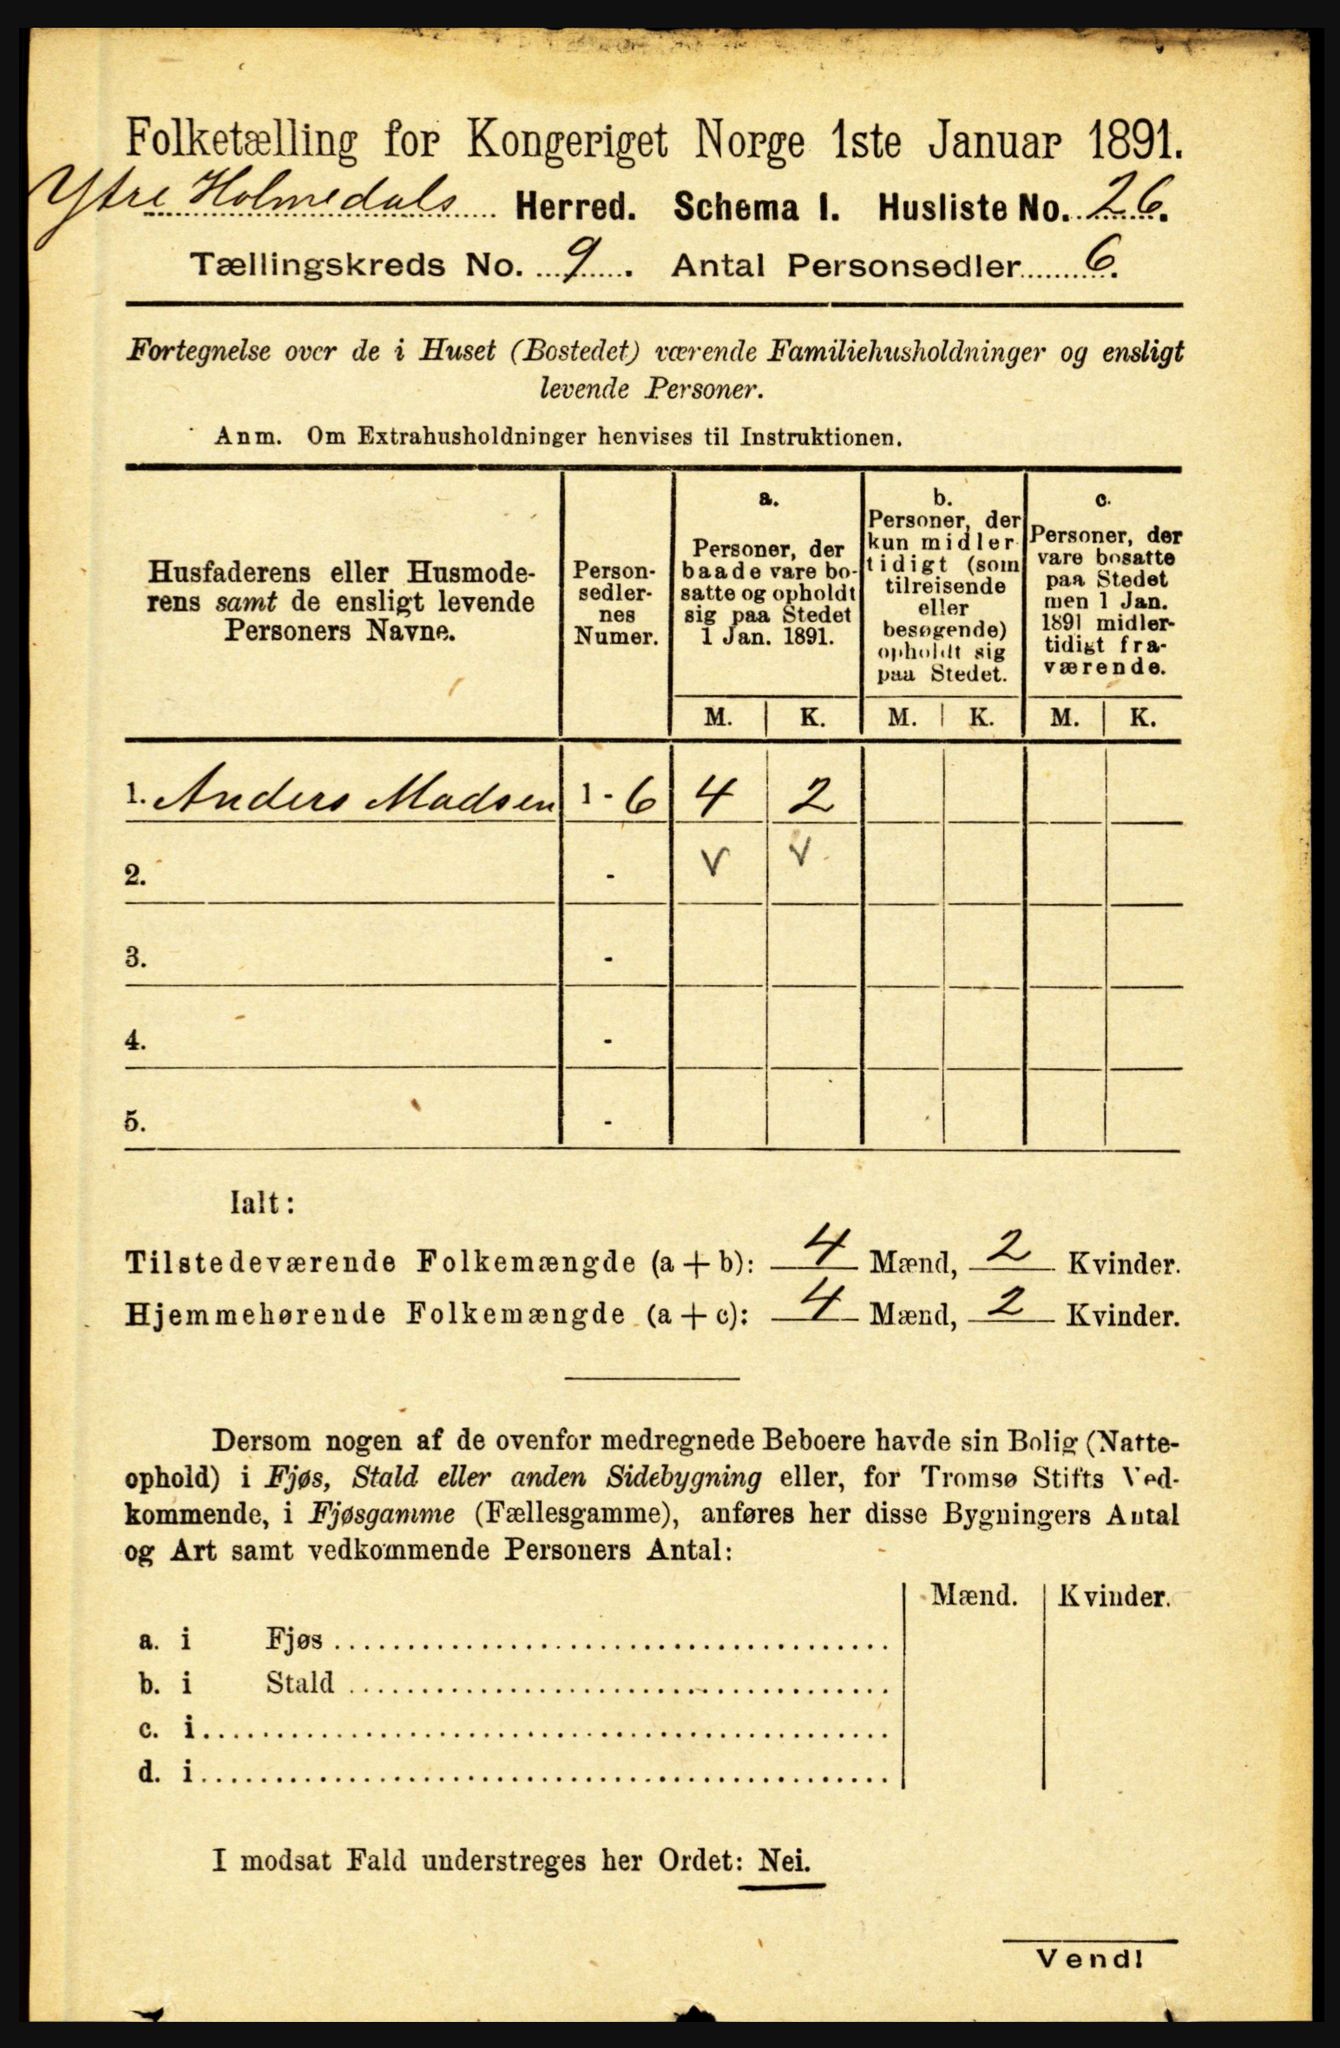 Folketælling for Kongeriget Norge 1ste Januar 1891.
Ytre Holmedals Herred. Schema I. Husliste No. 26.
Tællingskreds No. 9. Antal Personsedler 6.
Fortegnelse over de i Huset (Bostedet) værende Familiehusholdninger og ensligt
levende Personer.
Anm. Om Extrahusholdninger henvises til Instruktionen.
Husfaderens eller Husmode-
rens samt de ensligt levende
Personers Navne.
Person-
sedler-
nes
Numer.
a.
Personer, der
baade vare bo-
satte og opholdt
sig paa Stedet
1 Jan. 1891.
b.
Personer, der
kun midler-
tidigt (som
tilreisende
eller
besøgende)
opholdt sig
paa Stedet.
c.
Personer, der
vare bosatte
paa Stedet
men 1 Jan.
1891 midler-
tidigt fra-
værende.
M. K. M. K. M. K.
1. Anders Madsen 1 - 6 4 2
v v
2. -
3. -
4. -
5. -
Ialt:
Tilstedeværende Folkemængde (a + b): 4 Mænd, 2 Kvinder.
Hjemmehørende Folkemængde (a + c): 4 Mænd, 2 Kvinder.
Dersom nogen af de ovenfor medregnede Beboere havde sin Bolig (Natte-
ophold) i Fjøs, Stald eller anden Sidebygning eller, for Tromsø Stifts Ved-
kommende, i Fjøsgamme (Fællesgamme), anføres her disse Bygningers Antal
og Art samt vedkommende Personers Antal:
Mænd. Kvinder.
a. i Fjøs
b. i Stald
c. i
d. i
I modsat Fald understreges her Ordet: Nei.
Vend!